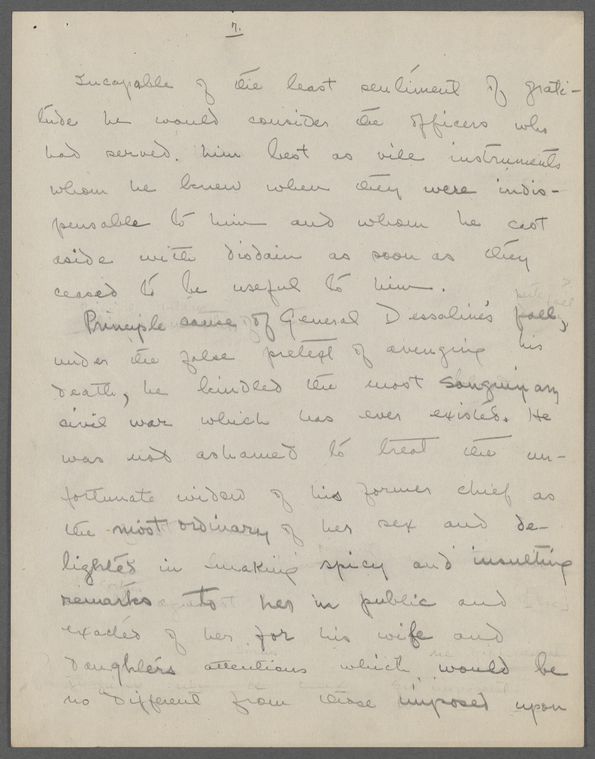 7.
Incapable of the least sentiment of grati-
tude he would consider the officers who
had served him best as vile instruments
whom he knew when they were indis-
pensable to him and whom he cast
aside with disdain as soon as they
ceased to be useful to him.
Principle cause of General Dessaline's fall,
under the false pretext of avenging his
death, he kindled the most sanguinary
civil war which has ever existed. He
was not ashamed to treat the un-
fortunate widow of his former chief as
the most ordinary of her sex and de-
lighted in making spicy and insulting
remarks to her in public and
exacted of her for his wife and
daughters attentions which would be
no different from those imposed upon